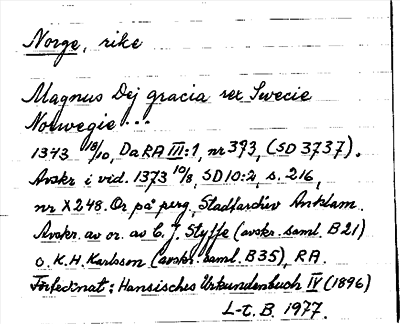 Norge, rike
Magnus Dej gracia rex Swecie
Norwegie...
1343 18/10, Da RA III:1, nr 393, (SD 3737).
Avskr i vid. 1373 10/8, SD 10:2, s. 216,
nr X 248. Or på perg, Stadtarchiv Anklam.
Avskr. av or. av C. J. Styffe (avskr. saml. B 21)
o. K. H. Karlsson (avskr. saml. B 35), RA.
: Hansisches Urkundenbuch IV (1896)
L-t, B. 1977.